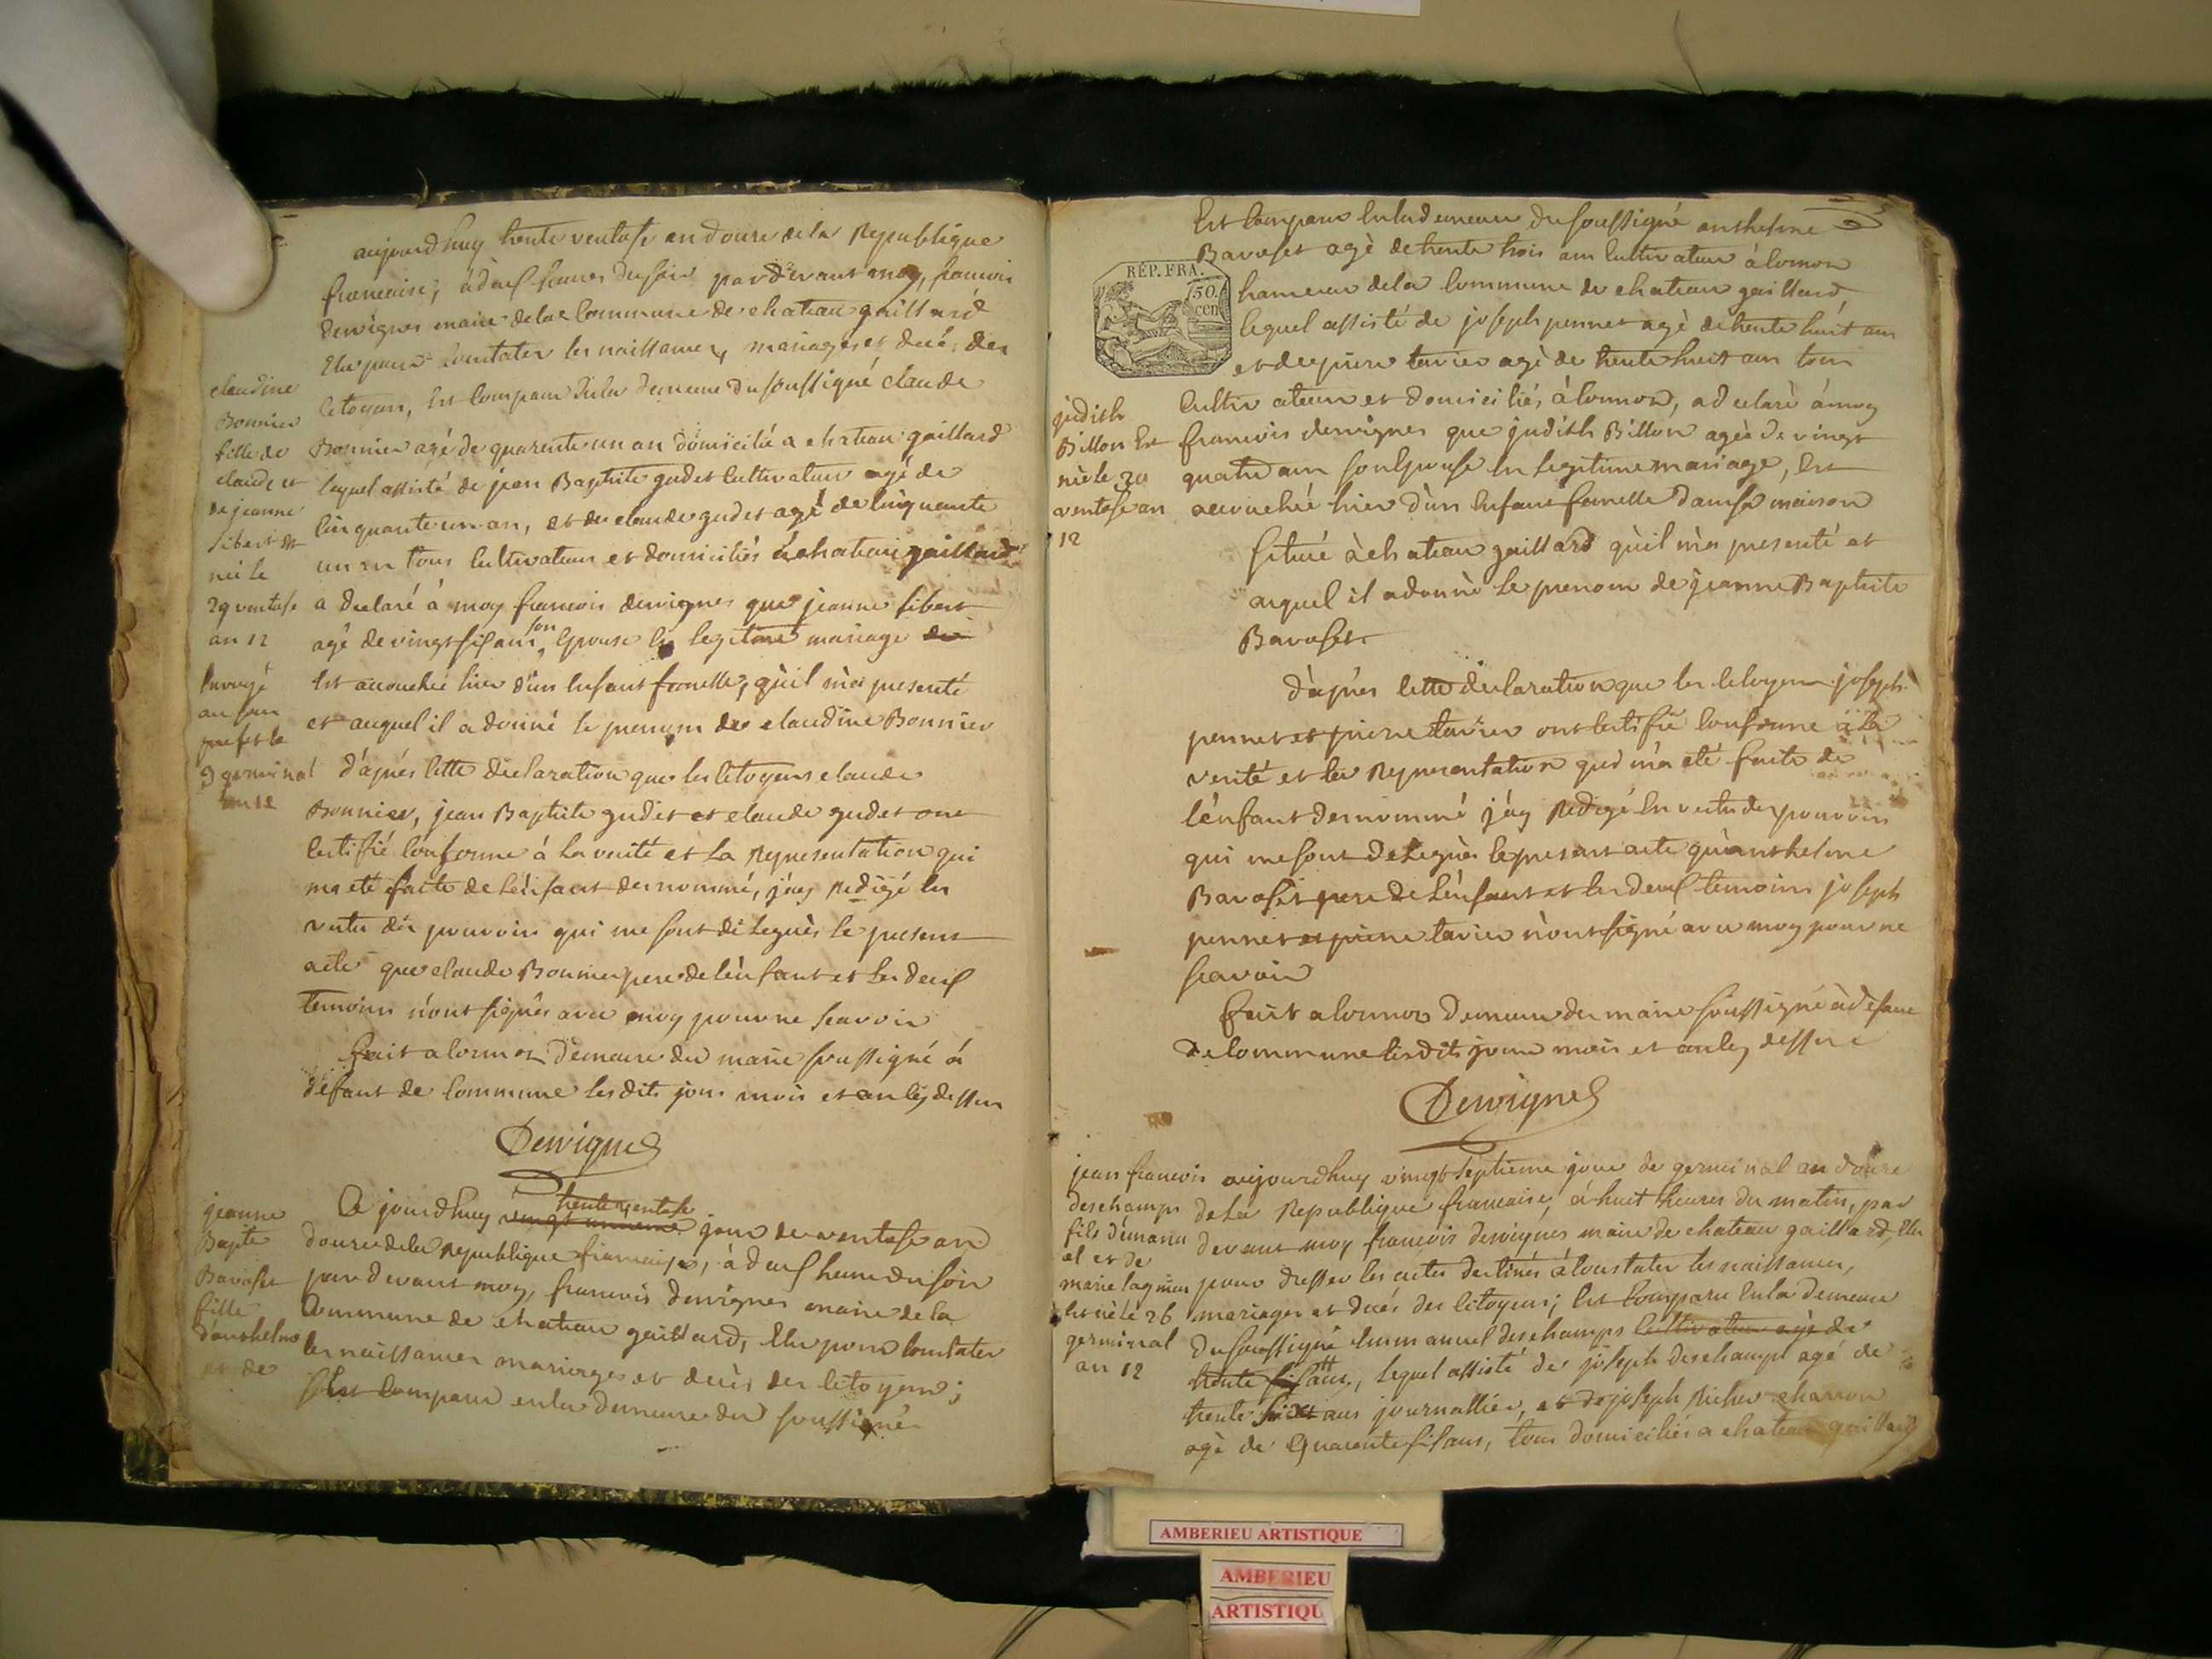 aujourdhuy trente ventose an douze de la Republique
francaise, à deux heures du soir par devant moy, francois
dervignes maire de la Commune de chateau gaillard
Elu pour Constater les naissances, mariages et decés des
Citoyens, Est Comparu En la demeure du soussigné claude
Bonnier agé de quarente un an domicilié a chateau gaillard
lequel assisté de jean Baptiste gudet Cultivateur agé de
Cinquante un an, et de claude gudet agé de Cinquante
un an tous Cultivateurs et domiciliés à chateau gaillard
a declaré à moy francois dervignes que jeanne
agé de vingt six ans, son Epouse En legitime mariage
Est accouchée hier d'un Enfant femelle, qu'il m'a presenté
et auquel il a donné le prenom de claudine Bonnier
d'aprés Cette declaration que les Citoyens claude
Bonnier, jean Baptiste gudet et claude gudet ont
Certifié Conforme à la verité et la Representation qui
ma eté faite de l'énfant denommé, j'ay Redigé En
vertu des pouvoirs qui me sont delegués le present
acte que claude Bonnier pere de l'énfant et les deux
temoins n'ont signés avec moy pour ne scavoir
fait a lormos demeure du maire soussigné à
defaut de Commune les dits jour mois et an Cy dessus
Dervignes
claudine
Bonnier
fille de
claude et
de jeanne
née le
29 ventose
an 12
Envoyé
au sous
prefet le
3 germinal
an 12
jeanne
Bapte
Bavoset
fille
d'anthelme
et de
Ce jourdhuy vingt unieme trente ventose jour de ventose an
douze de la Republique francaise, à deux heure du soir
par devant moy, francois dervignes maire de la
Commune de chateau gaillard, Elu pour Constater
les naissances mariages et decès des Citoyens;
Est Comparu en la demeure du soussigné
Est Comparu En la demeure du soussigné anthelme
Bavoset agè de trente trois ans Cultivateur à lormos
hameau de la Commune de chateau gaillard,
lequel assisté de joseph pennet agè de trente huit ans
et de pierre tavier agè de trente huit ans tous
Cultivateurs et domiciliés à lormos, a declarè à moy
francois dervignes que judith Billon agèe de vingt
quatre ans son Epouse En legitime mariage, Est
accouchée hier d'un Enfant femelle dans sa maison
situé à chateau gaillard qu'il m'a presenté et
auquel il a donnè le prenom de jeanne Baptiste
Bavoset
d'aprés Cette declaration que les Citoyens joseph
pennet et pierre tavier ont Certifié Conforme à la
verité et la Representation qui m'a eté faite de
l'énfant denommé j'ay Redigé En vertu des pouvoirs
qui me sont delegués le present acte qu'anthelme
Bavoset pere de l'énfant et les deux temoins joseph
pennet et pierre tavier n'ont signé avec moy pour ne
scavoir
fait a lormos demeure du maire soussigné à defaut
de Commune les dits jour mois et an Cy dessus
Dervignes
RÉP. FRA.
50.
cen
judith
Billon Est
née le 29
ventose an
12
jean francois
deschamps
fils d'émanu
el et de
marie
Est né le 26
germinal
an 12
aujourdhuy vingt septieme jour de germinal an douze
de la Republique francaise, à huit heures du matin, par
devant moy francois dervignes maire de chateau gaillard, Elu
pour dresser les actes destinés à Constater les naissances,
mariages et decés des Citoyens; Est Comparu En la demeure
du soussigné Emmanuel deschamps Cultivateur agé de
trente six ans, lequel assisté de joseph deschamps agé de
trente six ans journallier, et de joseph Richer charron
agè de Quarente six ans, tous domiciliés a chateau gaillard
AMBERIEU ARTISTIQUE
AMBERIEU
ARTISTIQU